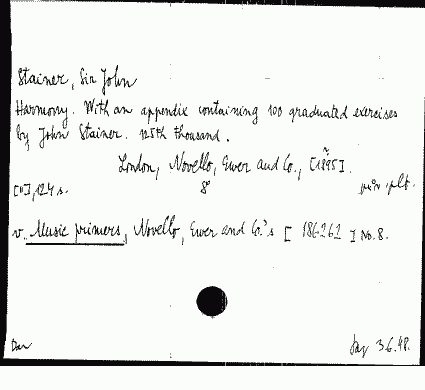 Stainer, Sir John
Harmony. With an appendix containing 100 graduated exercises
by John Stainer. 125th thousand.
London, Novello, Ewer and Co., [1895].
[II], 124 s. 8°
v. Music primers, Novello, Ewer and Co.'s [ 186262 ] No. 8.
3.6.48.